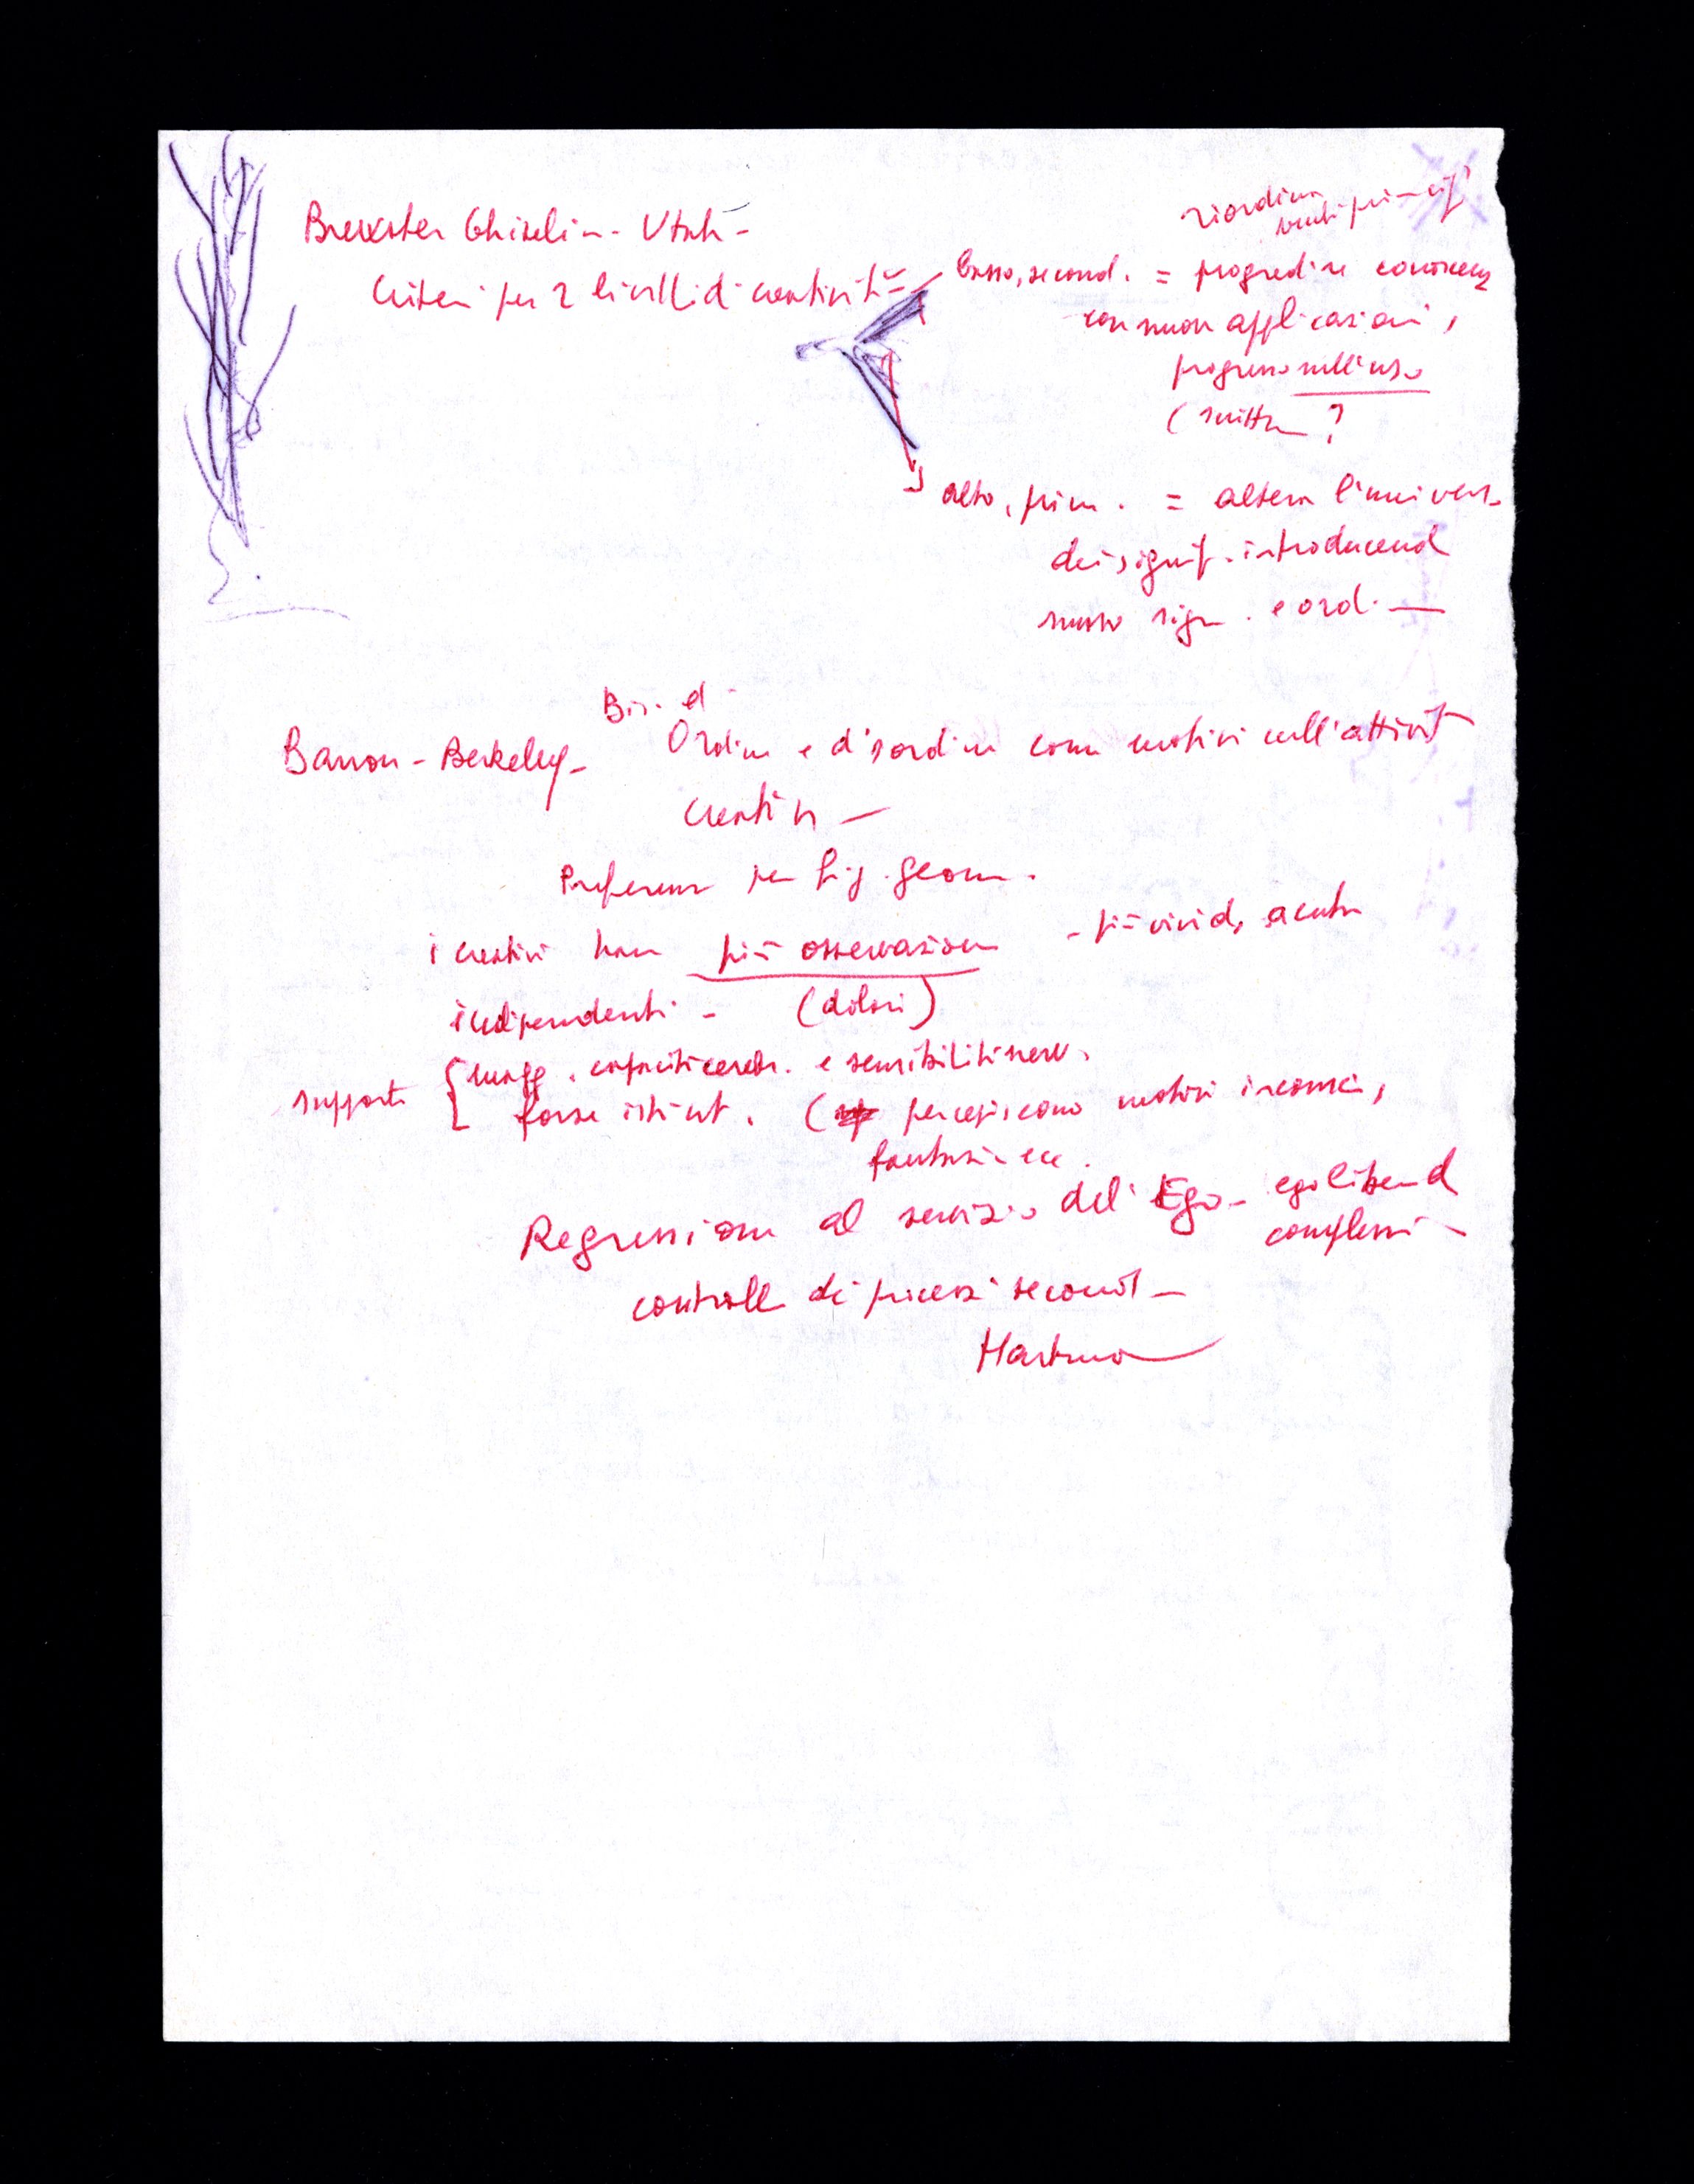 Brewster Ghiselin - Utah -
riordina
Criteri per 2 livelli di creatività = basso, second. = progredire conoscenz
con nuove applicazioni,
progresso nell'uso
( ?
alto, prim. = altera l'univers
dei signif. introducend
nuovo sign. e ord. —
Barron - Berkeley - Ordine e disordine come motivi nell'attività
creativa —
Preferenze per fig. geom.
i creativi hanno più osservazione - più vivid, acuta
indipendenti -
supporti { magg. capacità cerebr. e sensibilità nerv.
forse istint. ( percepiscono motivi inconsci,
fantasie ecc.
Regressione al servizio dell'Ego -
complessi -
controllo di processi second -
Hartman